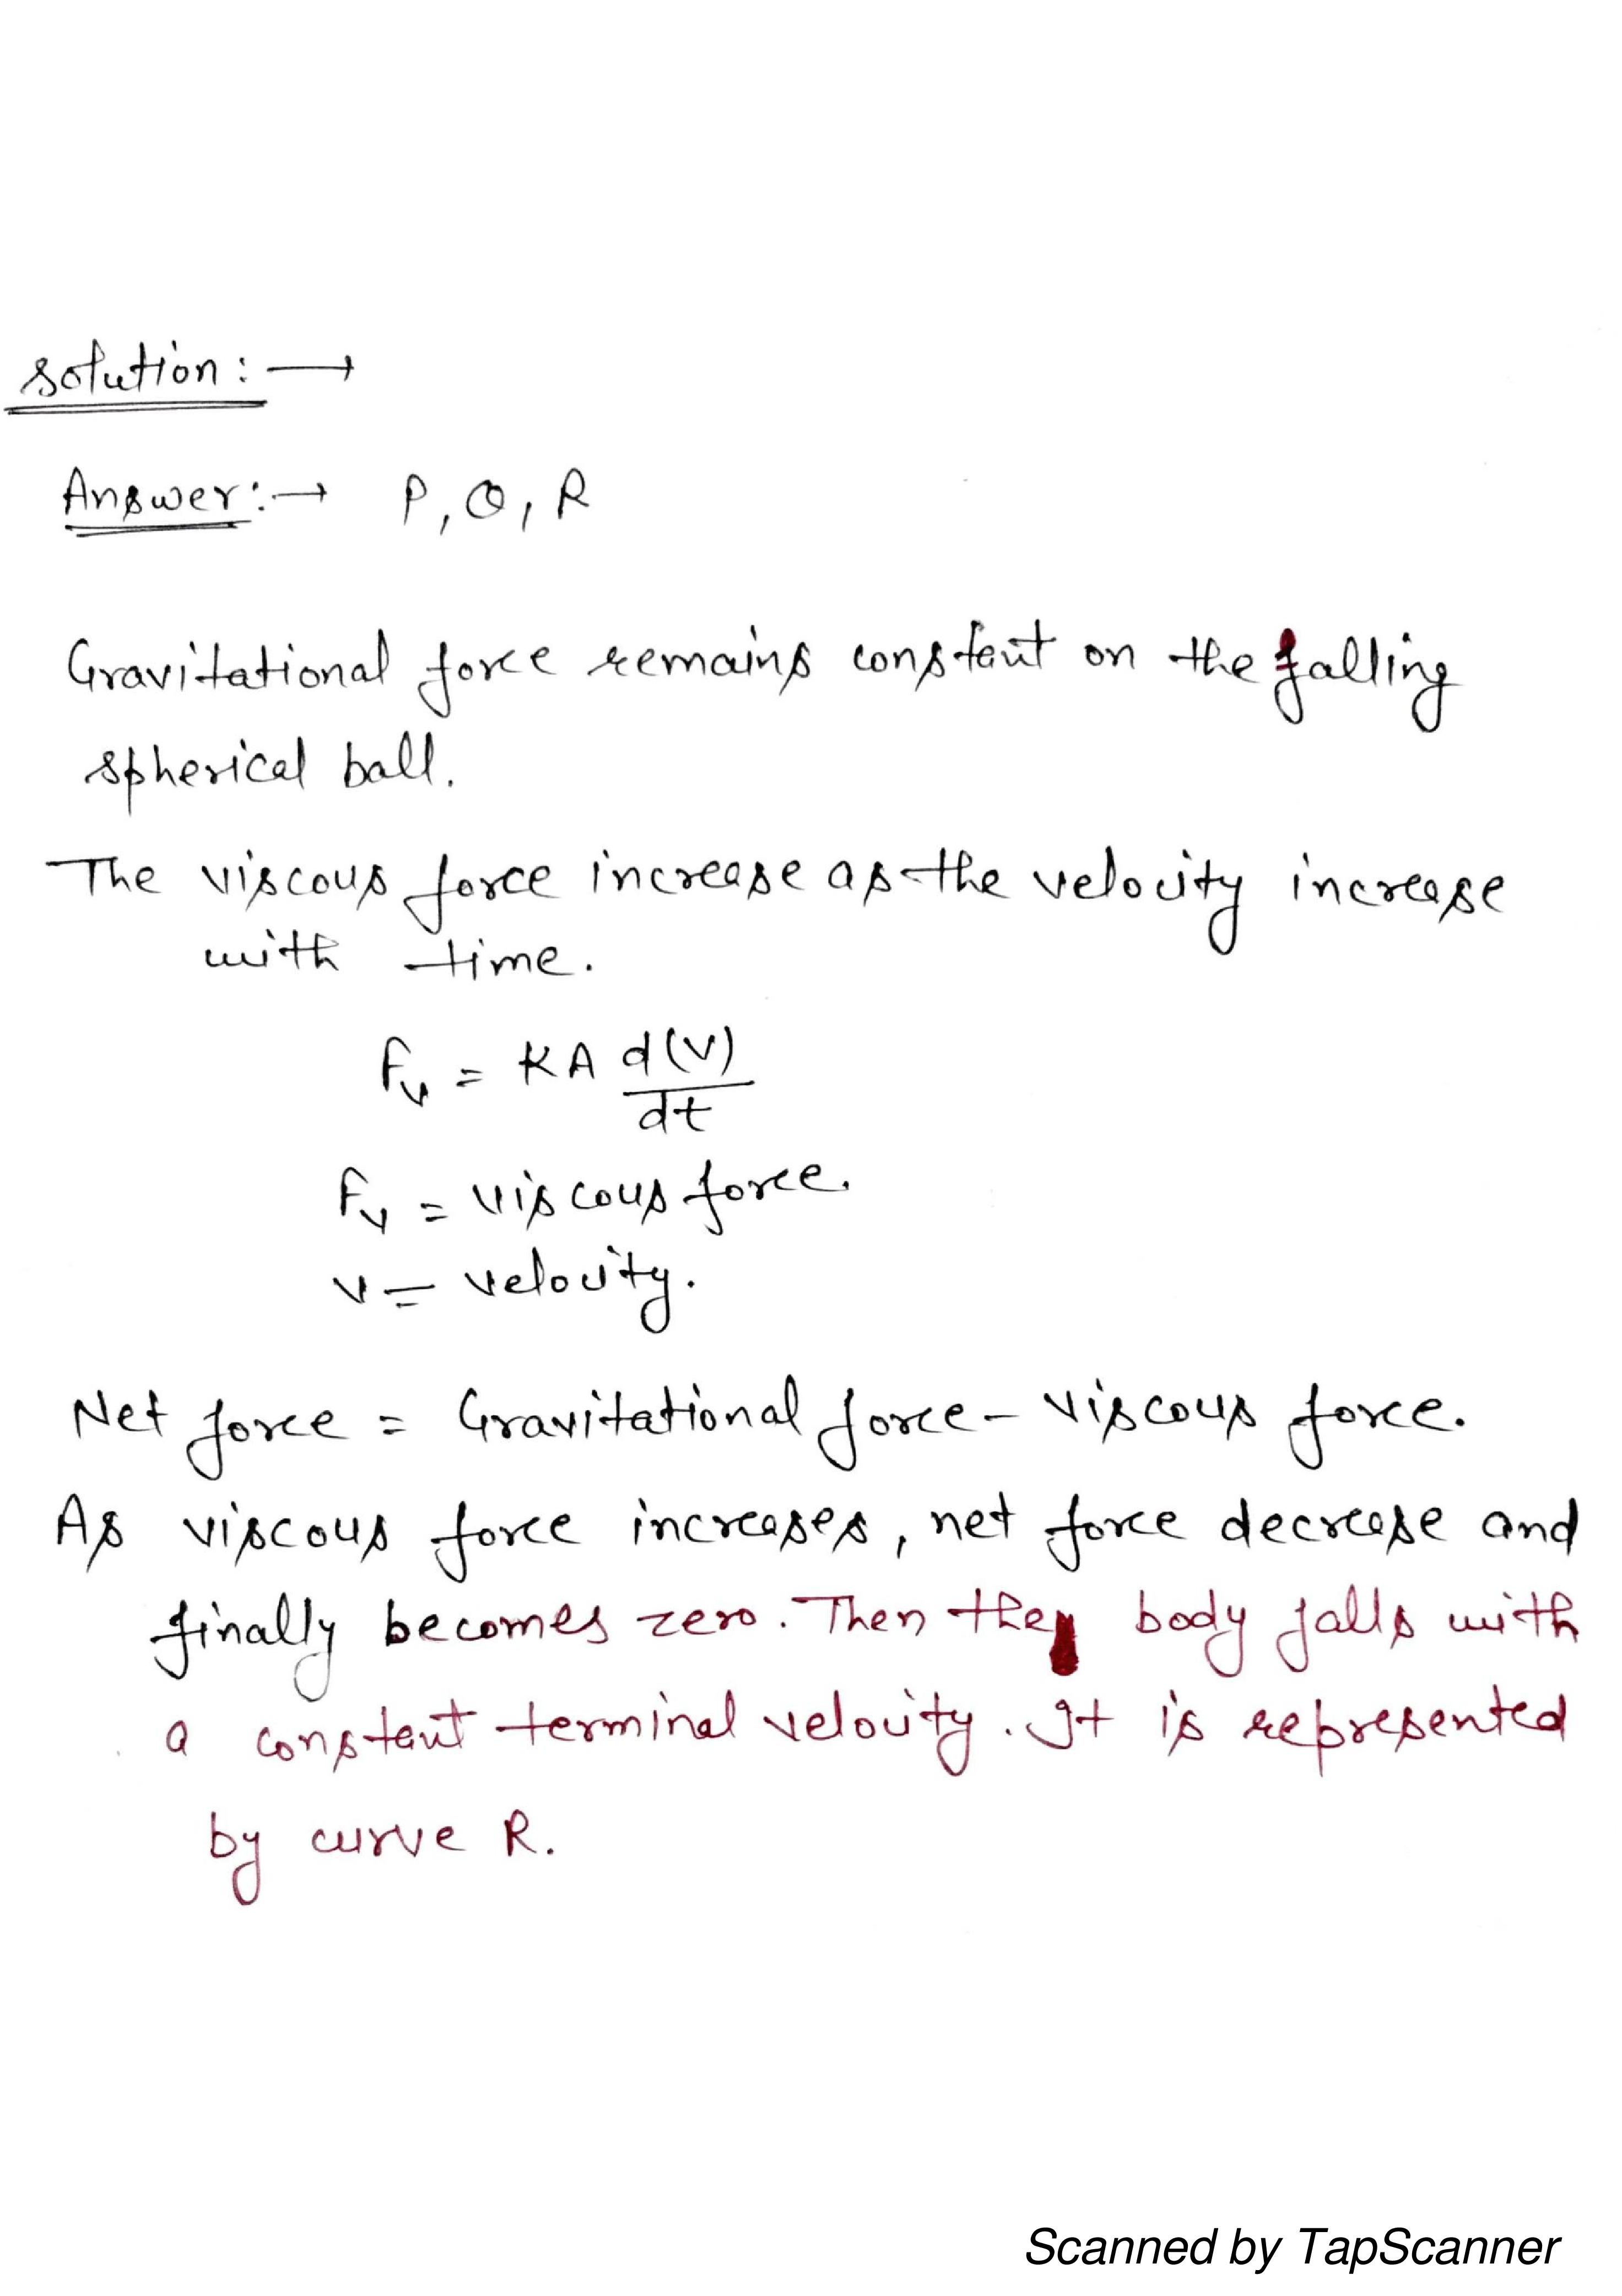 Solution:→
Answer:→ P, Q, R
Gravitational force remains constant on the falling
spherical ball.
The viscous force increase as the velocity increase
with time.
Fv = KA d(v)/dt
Fv = viscous force.
v = velocity.
Net force = Gravitational force - viscous force.
As viscous force increases, net force decrease and
finally becomes zero. Then the body falls with
a constant terminal velocity. It is represented
by curve R.
Scanned by TapScanner